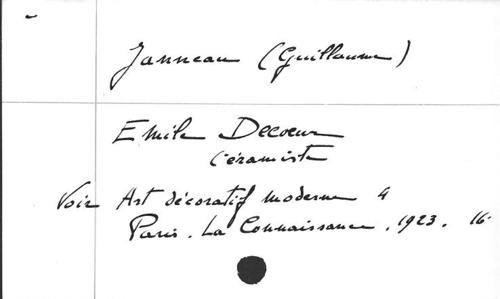 Janneau (Guillaume)
Emile Decoeur
Céramiste
Voir Art décoratif moderne 4
Paris. La Connaissance. 1923. 16°